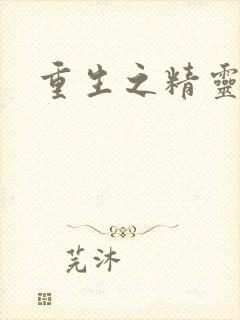 重生之精靈
芫沐